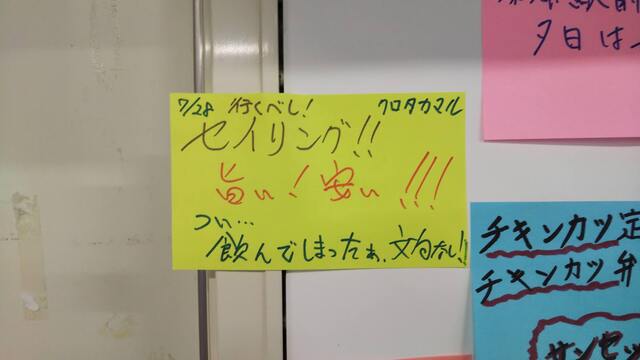 7/28 行くべし! クロタカマル
セイリング!!
旨い! 安い!!!
つい…
飲んでしまったぁ、文句なし!
夕日は
チキンカツ定
チキンカツ弁
サンセッ